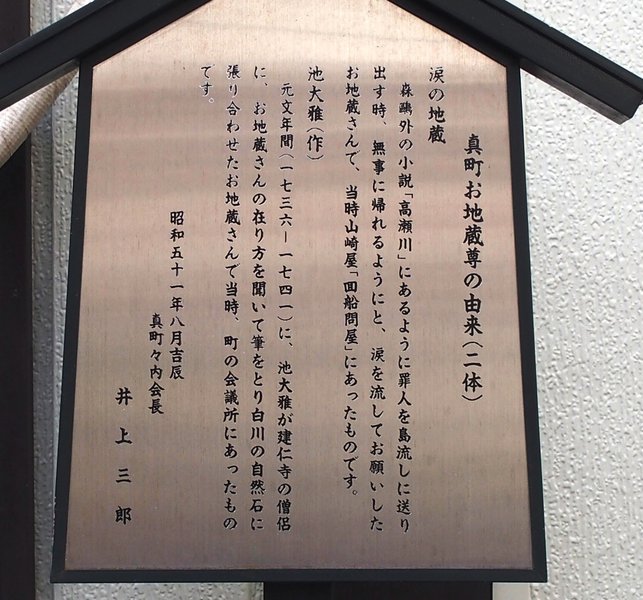 真町お地蔵尊の由来(二体)
涙の地蔵
森鷗外の小説「高瀬川」にあるように罪人を島流しに送り
出す時、無事に帰れるようにと、涙を流してお願いした
お地蔵さんで、当時山崎屋「回船問屋」にあったものです。
池大雅(作)
元文年間(一七三六ー一七四一)に、池大雅が建仁寺の僧侶
に、お地蔵さんの在り方を聞いて筆をとり白川の自然石に
張り合わせたお地蔵さんで当時、町の会議所にあったもの
です。
昭和五十一年八月吉辰
真町々内会長
井上三郎